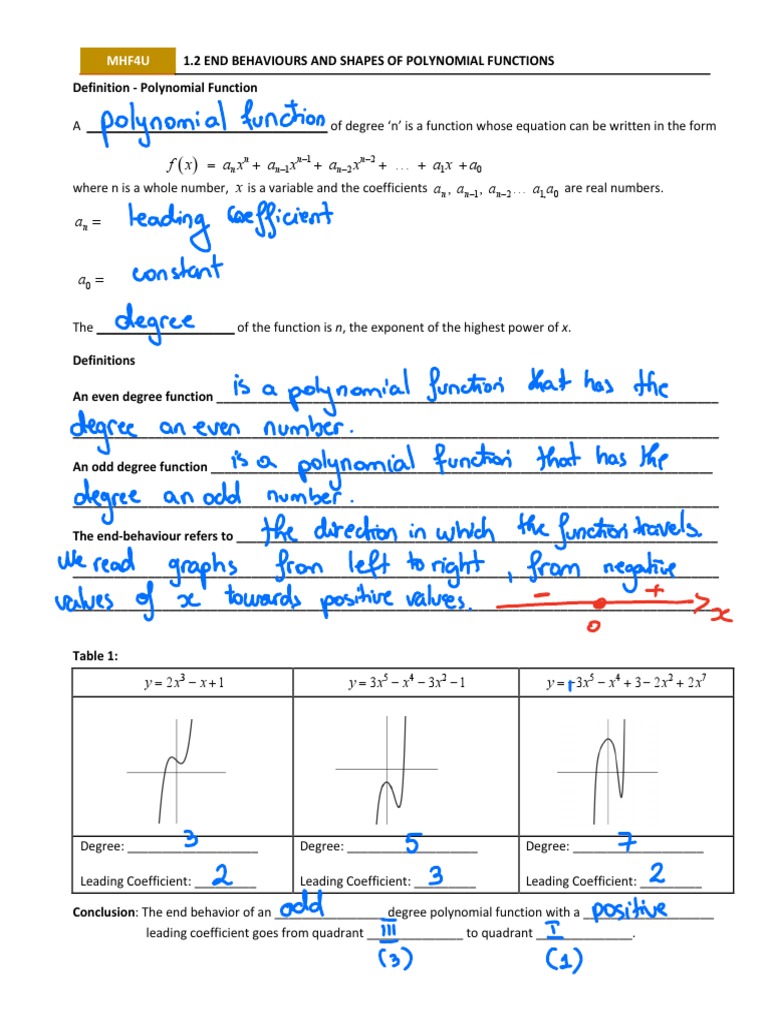 MHF4U 1.2 END BEHAVIOURS AND SHAPES OF POLYNOMIAL FUNCTIONS
Definition - Polynomial Function
A polynomial function of degree ‘n’ is a function whose equation can be written in the form
f(x) = aₙxⁿ + aₙ₋₁xⁿ⁻¹ + aₙ₋₂xⁿ⁻² + … + a₁x + a₀
where n is a whole number, x is a variable and the coefficients aₙ, aₙ₋₁, aₙ₋₂ … a₁,a₀ are real numbers.
aₙ = leading coefficient
a₀ = constant
The degree of the function is n, the exponent of the highest power of x.
Definitions
An even degree function is a polynomial function that has the
degree an even number.
An odd degree function is a polynomial function that has the
degree an odd number.
The end-behaviour refers to the direction in which the function travels.
We read graphs from left to right, from negative
values of x towards positive values. - + x
0
Table 1:
y = 2x³ − x + 1 y = 3x⁵ − x⁴ − 3x² − 1 y = + 3x⁵ − x⁴ + 3 − 2x² + 2x⁷
Degree: 3 Degree: 5 Degree: 7
Leading Coefficient: 2 Leading Coefficient: 3 Leading Coefficient: 2
Conclusion: The end behavior of an odd degree polynomial function with a positive
leading coefficient goes from quadrant III to quadrant I.
(3) (1)